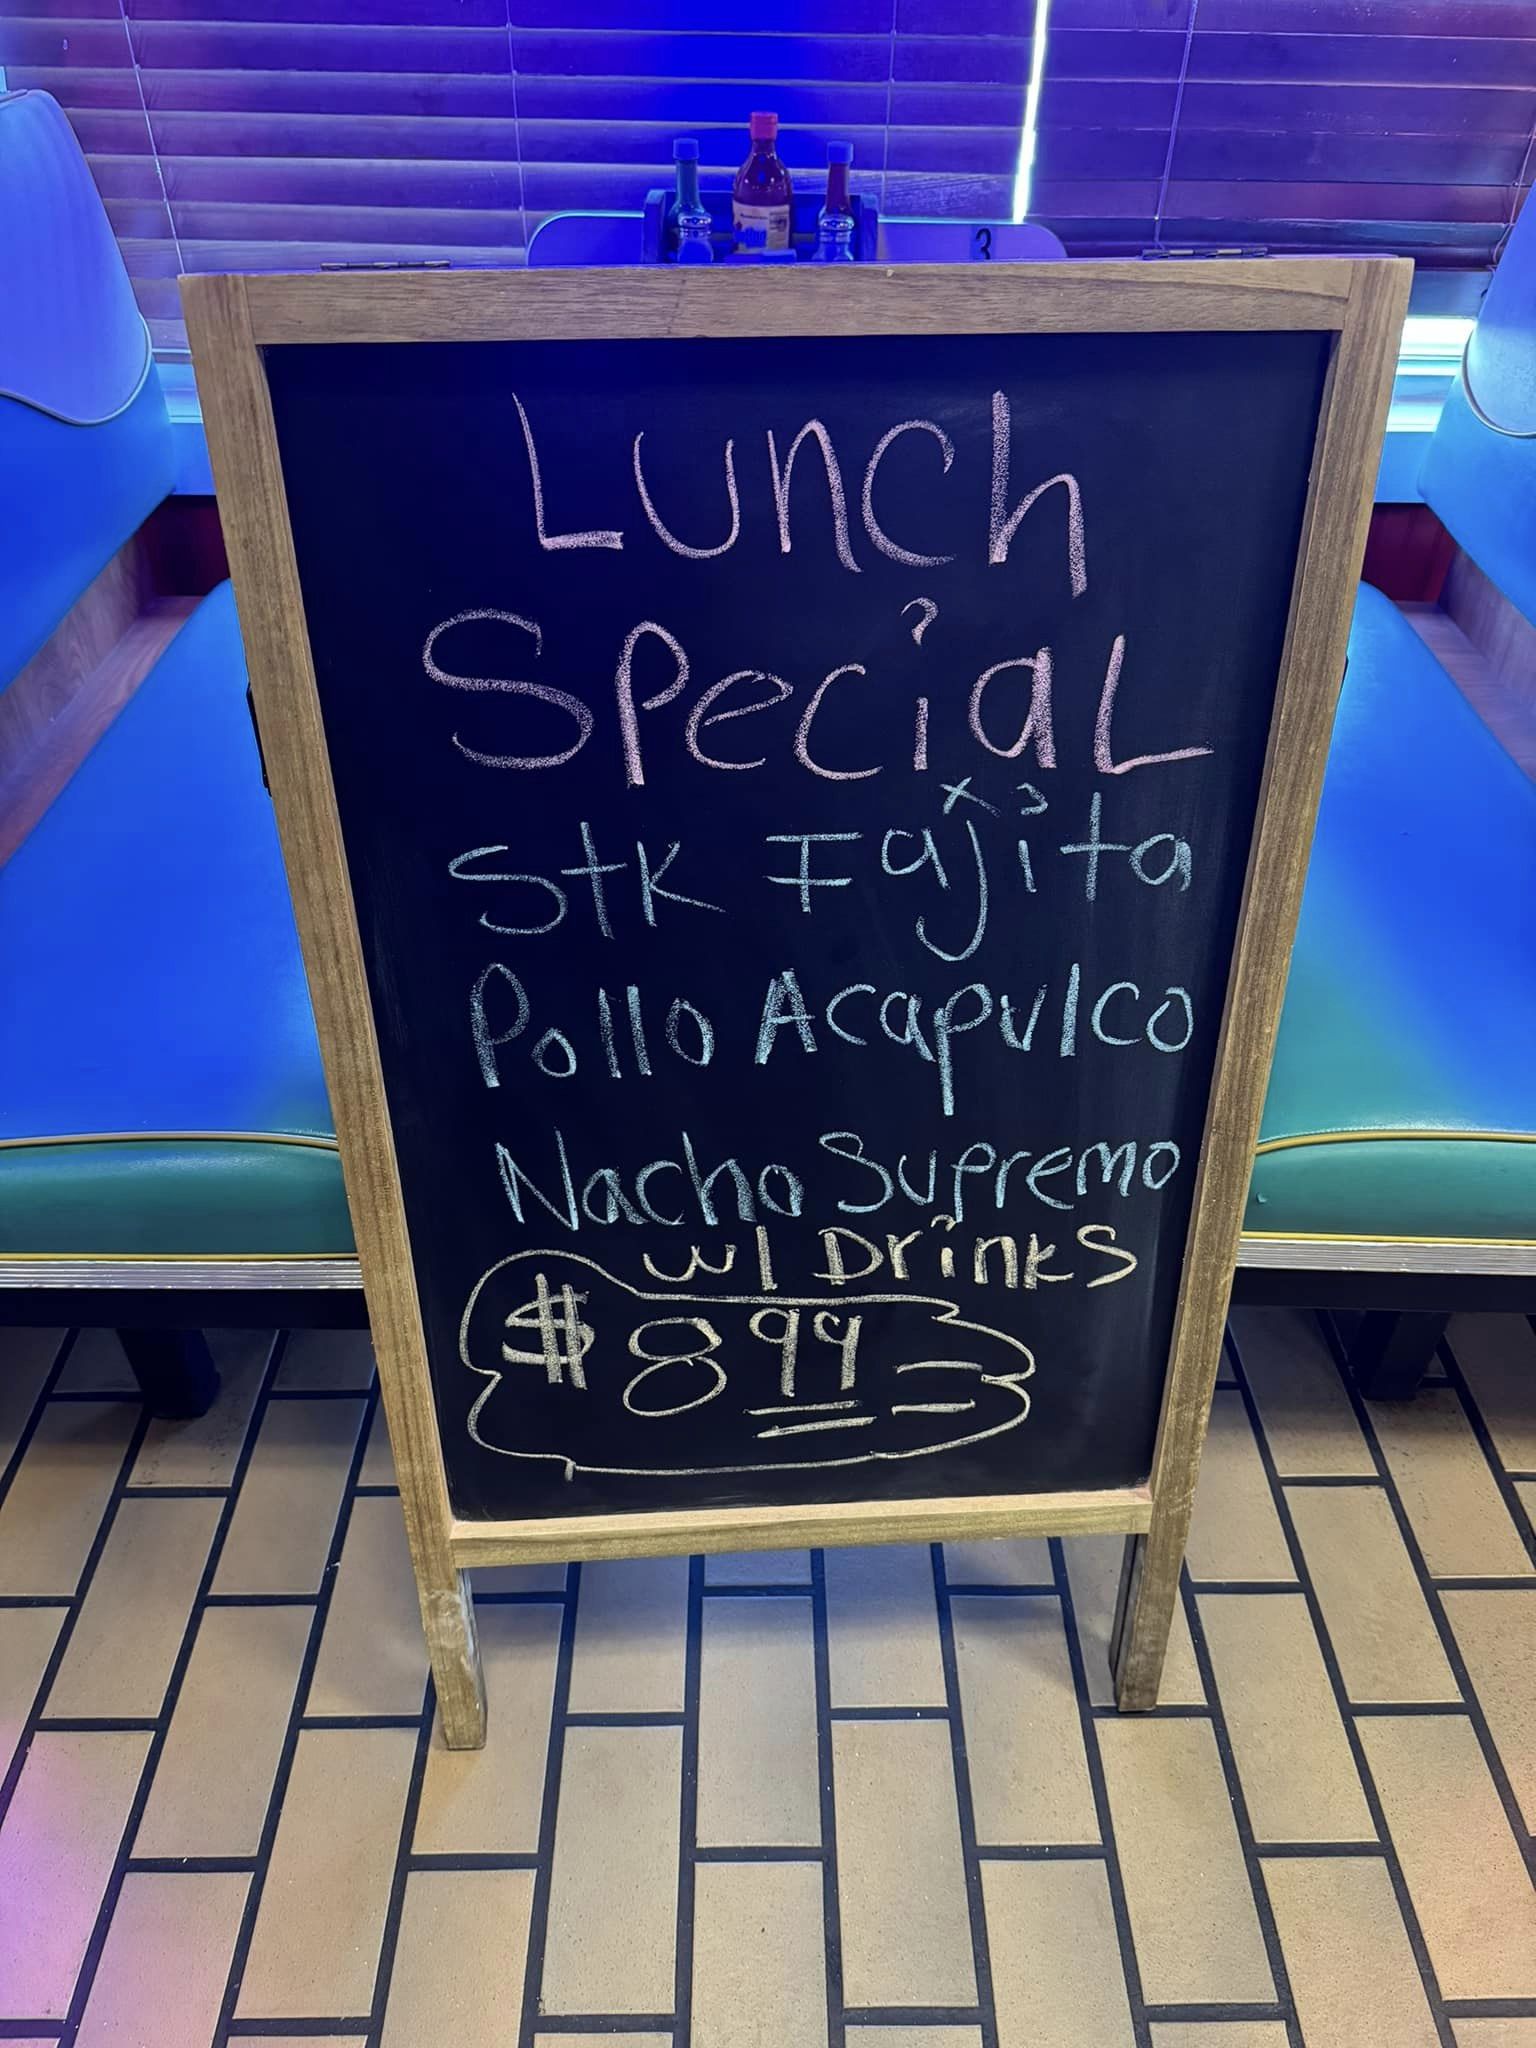 3
Lunch
Special
Stk Fajita
Pollo Acapulco
Nacho Supremo
w/ Drinks
$8.99